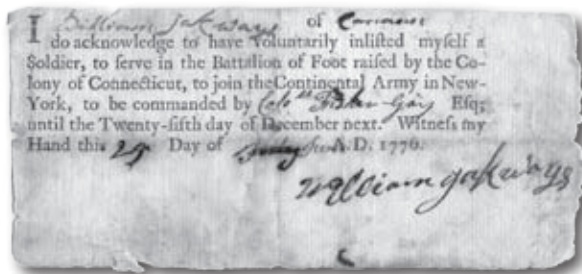 I William Jakways of
do acknowledge to have Voluntarily inliſted myſelf a
Soldier, to ſerve in the Battalion of Foot raiſed by the Co-
lony of Connecticut, to join the Continental Army in New-
York, to be commanded by Fisher Gay Eſq;
until the Twenty-fifth day of December next. Witneſs my
Hand this 29 Day of A.D. 1776.
William Jakways